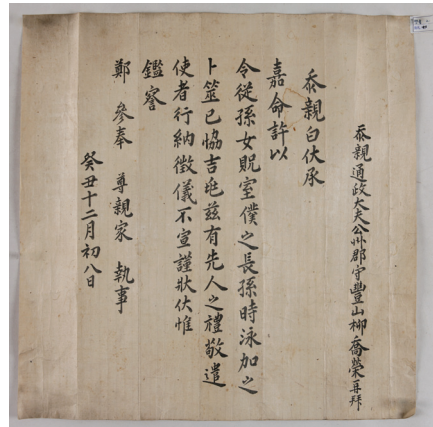 忝親通政大夫公州郡守豐山柳喬榮再拜
忝親白伏承
嘉命許以
令從孫女貺室僕之長孫時泳加之
卜筮已恊吉兆玆有先人之禮敬遣
使者行納徵儀不宣謹狀伏惟
鑑詧
鄭 參奉 尊親家 執事
癸丑十二月初八日